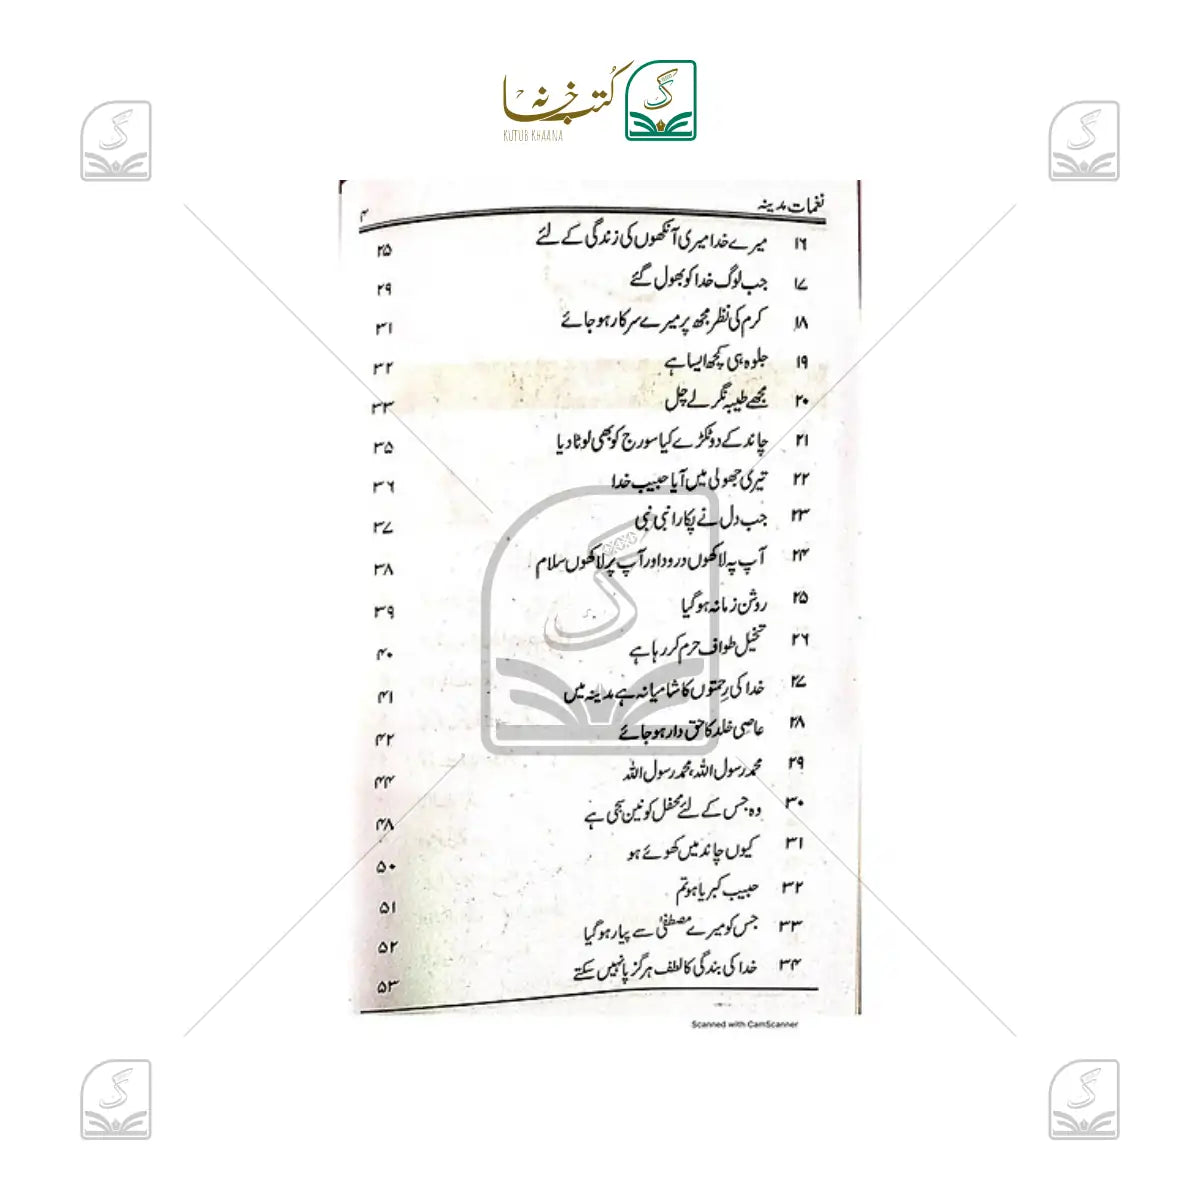 کتب خانہ
KUTUB KHAANA
نغمات مدینہ ۴
۱۶ میرے خدا میری آنکھوں کی زندگی کے لئے ۲۵
۱۷ جب لوگ خدا کو بھول گئے ۲۹
۱۸ کرم کی نظر مجھ پر میرے سرکار ہو جائے ۳۱
۱۹ جلوہ ہی کچھ ایسا ہے ۳۲
۲۰ مجھے طیبہ نگر لے چل ۳۳
۲۱ چاند کے دو ٹکڑے کیا سورج کو بھی لوٹا دیا ۳۵
۲۲ تیری جھولی میں آیا حبیب خدا ۳۶
۲۳ جب دل نے پکارا نبی نبی ۳۷
۲۴ آپ پہ لاکھوں درود اور آپ پر لاکھوں سلام ۳۸
۲۵ روشن زمانہ ہو گیا ۳۹
۲۶ تخیل طواف حرم کر رہا ہے ۴۰
۲۷ خدا کی رحمتوں کا شامیانہ ہے مدینہ میں ۴۱
۲۸ عاصی خلد کا حق دار ہو جائے ۴۲
۲۹ محمد رسول اللہ، محمد رسول اللہ ۴۴
۳۰ وہ جس کے لئے محفل کونین سجی ہے ۴۸
۳۱ کیوں چاند میں کھوئے ہو ۵۰
۳۲ حبیب کبریا ہو تم ۵۱
۳۳ جس کو میرے مصطفیٰ سے پیار ہو گیا ۵۲
۳۴ خدا کی بندگی کا لطف ہرگز پا نہیں سکتے ۵۳
Scanned with CamScanner